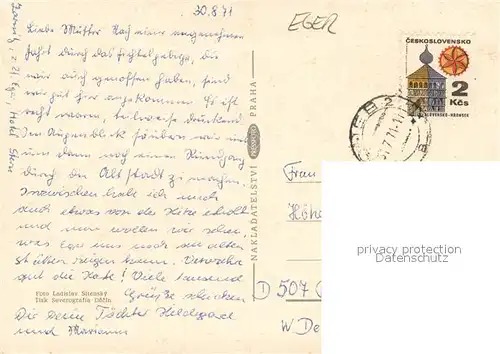 30.8.71
EGER
Liebe Mutter Nach einer angenehmen
Fahrt durch das Fichtelgebirge, die
wir auch genossen haben, sind
wir gut hier angekommen. Es ist
recht warm, teilweise drückend.
Im Augenblick
um dann noch einen Rundgang
durch die Altstadt zu machen.
Inzwischen habe ich mich
auch etwas von der Hitze erholt
und nun wollen wir sehen,
was Eger uns noch an alten
Stätten zeigen kann. Verwahr
gut die Karte! Viele tausend
Grüße schicken
Dir deine Töchter Hildegard
und Marianne
Foto Ladislav Sitenský
Tisk Severografia Děčín
NAKLADATELSTVÍ ORBIS PRAHA
ČESKOSLOVENSKO
2
Kčs
CHEB 2
Frau
Höh
D 507
W De
privacy protection
Datenschutz